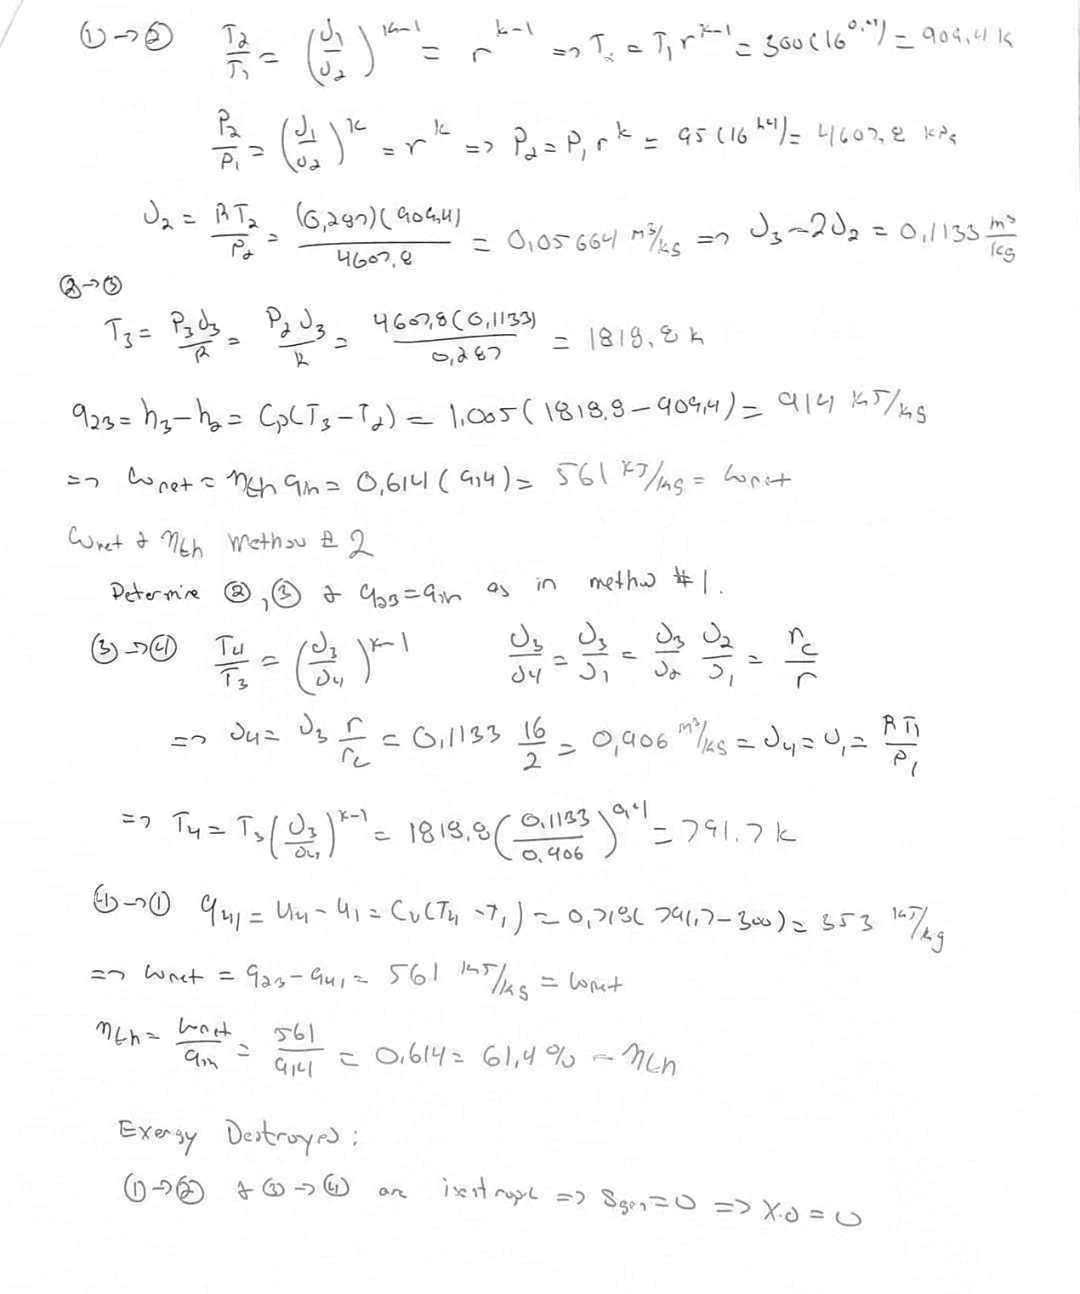 ① → ② T₂/T₁ = (υ₁/υ₂)^(k-1) = r^(k-1) => T₂ = T₁ r^(k-1) = 300(16^0.4) = 909,4 K
P₂/P₁ = (υ₁/υ₂)^k = r^k => P₂ = P₁ r^k = 95(16^1.4) = 4607,8 kPa
υ₂ = RT₂/P₂ = (0,287)(909,4)/4607,8 = 0,05664 m³/kg => υ₃ = 2υ₂ = 0,1133 m³/kg
② → ③
T₃ = P₃υ₃/R = P₂υ₃/R = 4607,8(0,1133)/0,287 = 1818,8 K
q₂₃ = h₃ - h₂ = Cp(T₃ - T₂) = 1,005(1818,8 - 909,4) = 914 kJ/kg
=> ωnet = ηth qin = 0,614(914) = 561 kJ/kg = ωnet
ωnet & ηth Method # 2
Determine ②, ③ & q₂₃ = qin as in method #1.
③ → ④ T₄/T₃ = (υ₃/υ₄)^(k-1) υ₃/υ₄ = υ₃/υ₁ = υ₃/υ₂ υ₂/υ₁ = rc/r
=> υ₄ = υ₃ r/rc = 0,1133 16/2 = 0,906 m³/kg = υ₄ = υ₁ = RT₁/P₁
=> T₄ = T₃(υ₃/υ₄)^(k-1) = 1818,8(0,1133/0,906)^0,4 = 791.7 K
④ → ① q₄₁ = u₄ - u₁ = Cv(T₄ - T₁) = 0,718(791,7 - 300) = 353 kJ/kg
=> ωnet = q₂₃ - q₄₁ = 561 kJ/kg = ωnet
ηth = ωnet/qin = 561/914 = 0,614 = 61,4 % = ηth
Exergy Destroyed :
① → ② & ③ → ④ are isentropic => Sgen = 0 => XD = 0